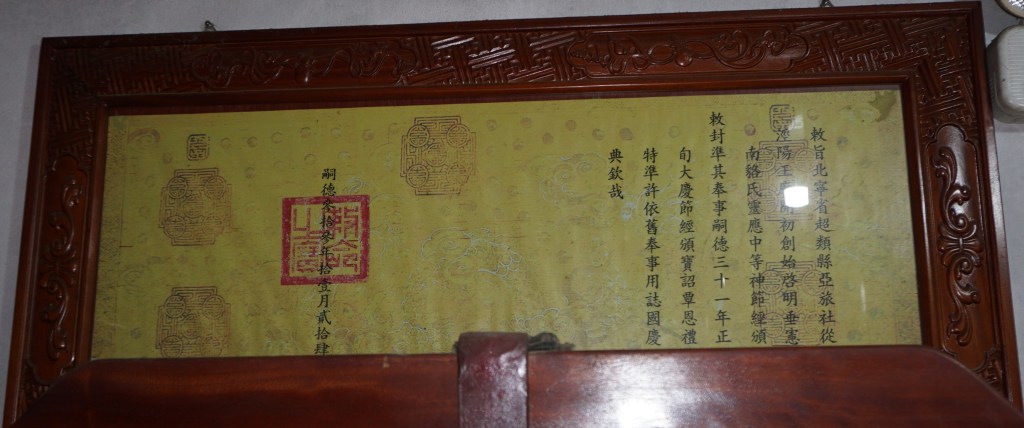 敕旨北寧省超類縣亞旅社從
陽王初創始啓明垂憲
南貉氏靈應中等神節經頒
敕封準其奉事嗣德三十一年正
旬大慶節經頒寶詔覃恩禮
特準許依舊奉事用誌國慶
典欽哉
嗣德叁拾叁年拾壹月貳拾肆